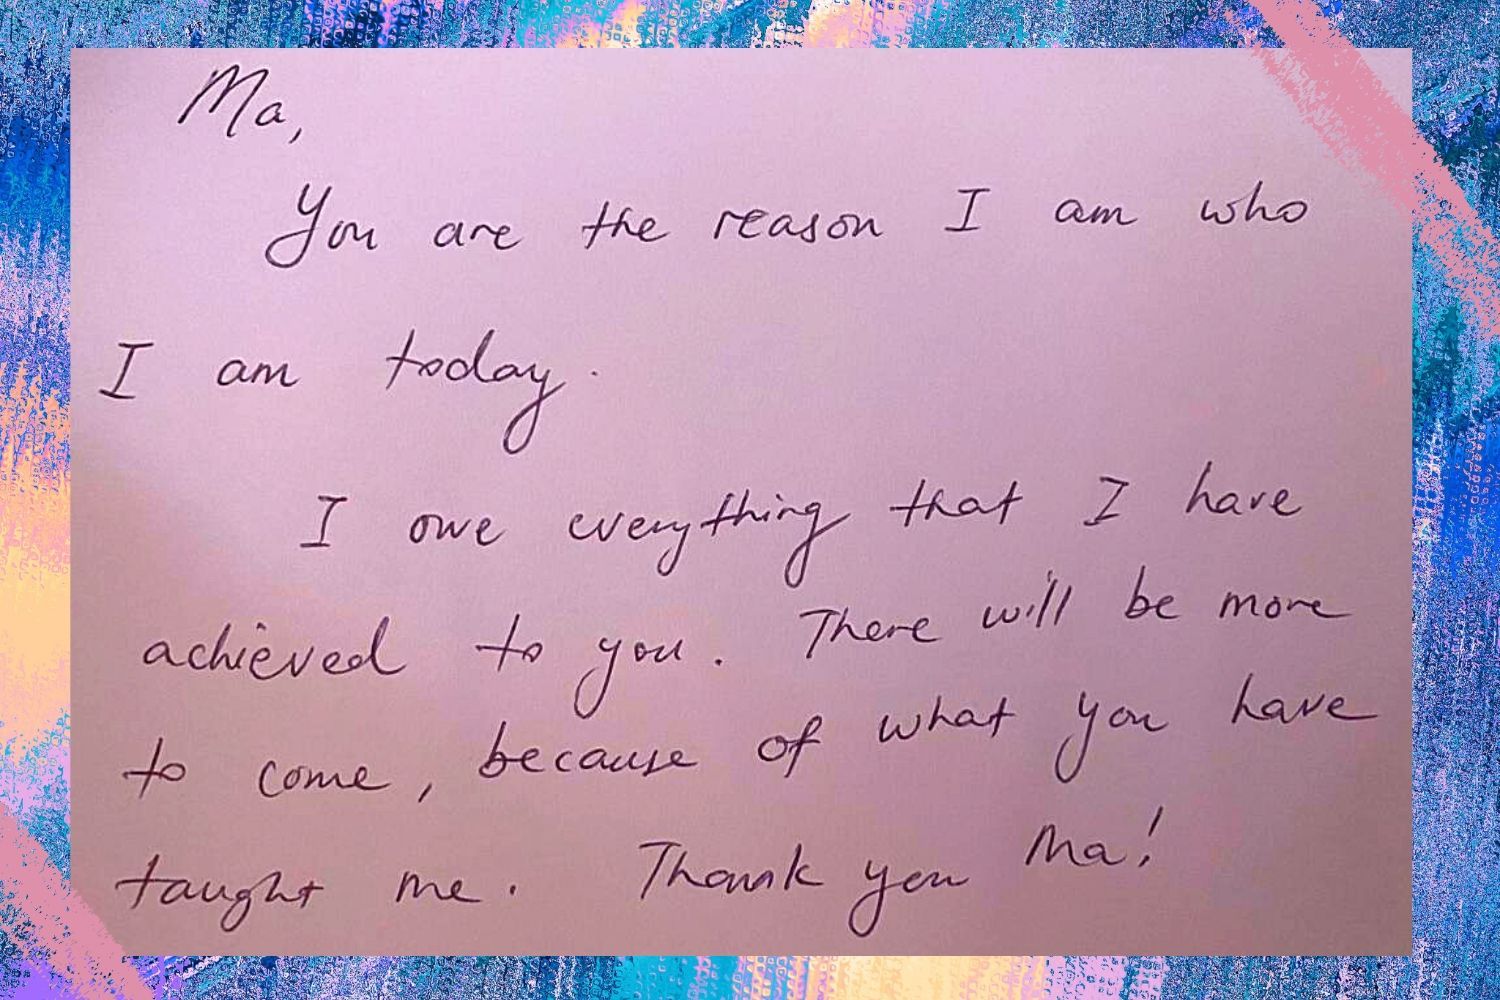 Ma,
You are the reason I am who
I am today.
I owe everything that I have
achieved to you. There will be more
to come, because of what you have
taught me. Thank you Ma!